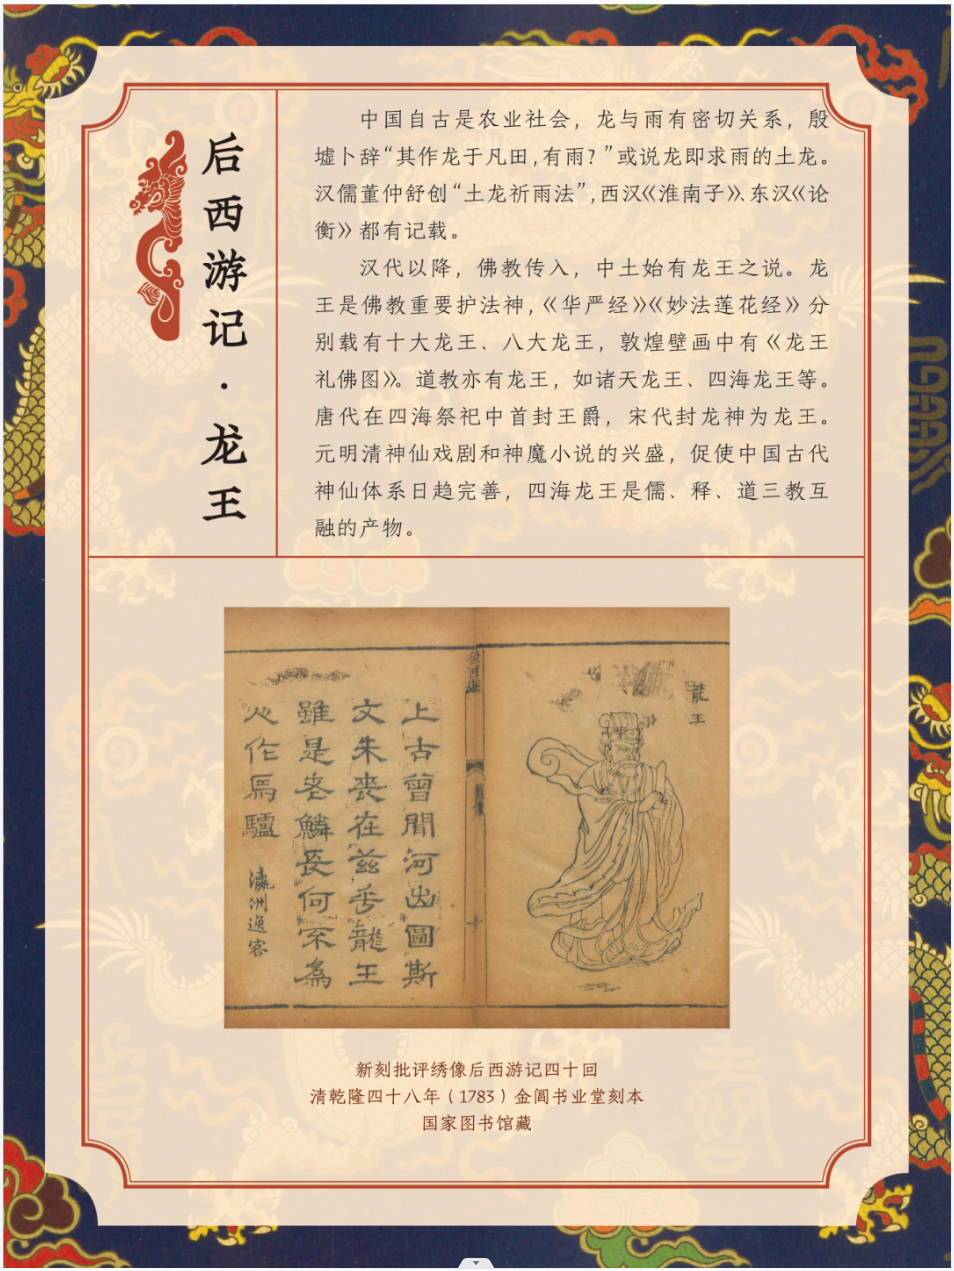 后西游记·龙王
中国自古是农业社会，龙与雨有密切关系，殷
墟卜辞“其作龙于凡田，有雨？”或说龙即求雨的土龙。
汉儒董仲舒创“土龙祈雨法”，西汉《淮南子》、东汉《论
衡》都有记载。
汉代以降，佛教传入，中土始有龙王之说。龙
王是佛教重要护法神，《华严经》《妙法莲花经》分
别载有十大龙王、八大龙王，敦煌壁画中有《龙王
礼佛图》。道教亦有龙王，如诸天龙王、四海龙王等。
唐代在四海祭祀中首封王爵，宋代封龙神为龙王。
元明清神仙戏剧和神魔小说的兴盛，促使中国古代
神仙体系日趋完善，四海龙王是儒、释、道三教互
融的产物。
龍王
上古曾聞河出圖斯
文朱喪在茲乎龍王
雖是老鱗長何不為
心作馬驢
瀛洲逸客
新刻批评绣像后西游记四十回
清乾隆四十八年（1783）金阊书业堂刻本
国家图书馆藏